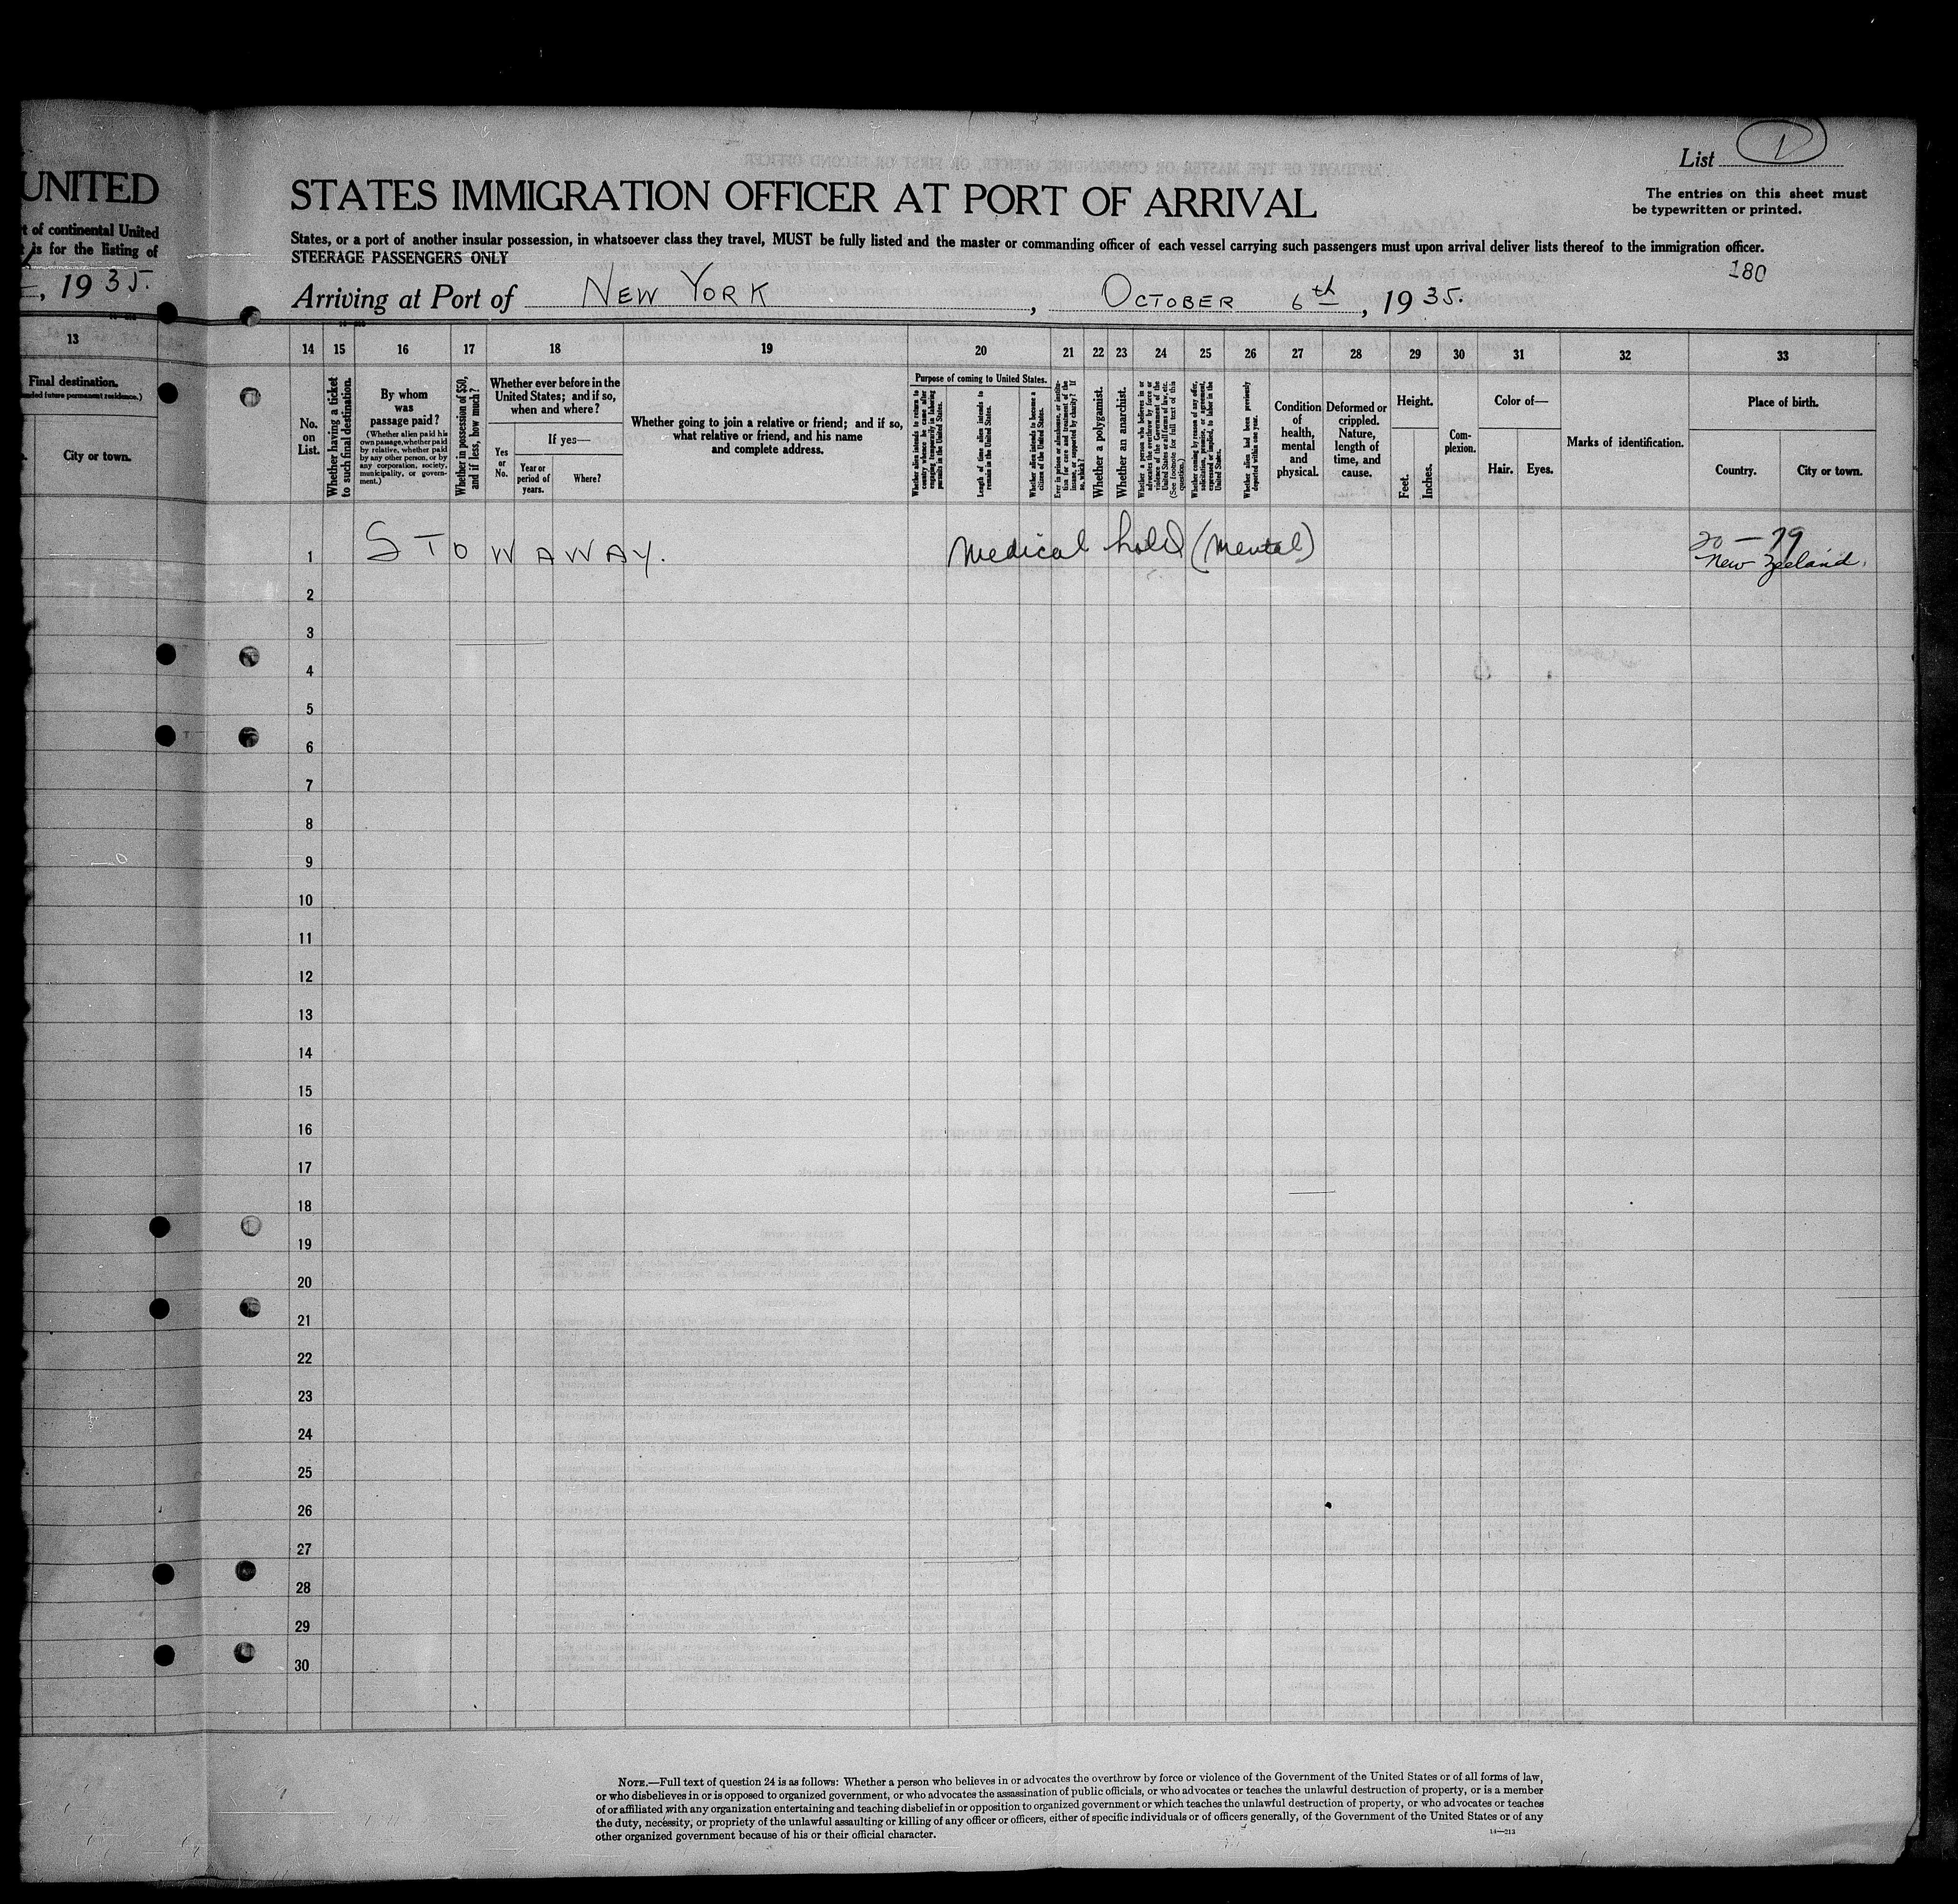 List 1
The entries on this sheet must
be typewritten or printed.
UNITED
STATES IMMIGRATION OFFICER AT PORT OF ARRIVAL
t of continental United
States, or a port of another insular possession, in whatsoever class they travel, MUST be fully listed and the master or commanding officer of each vessel carrying such passengers must upon arrival deliver lists thereof to the immigration officer.
is for the listing of
STEERAGE PASSENGERS ONLY
180
, 1935.
Arriving at Port of NEW YORK, OCTOBER 6th, 1935.
13 14 15 16 17 18 19 20 21 22 23 24 25 26 27 28 29 30 31 32 33
Final destination.
nded future permanent residence.)
City or town.
No.
on
List.
Whether having a ticket
to such final destination.
By whom
was
passage paid?
(Whether alien paid his
own passage, whether paid
by relative, whether paid
by any other person, or by
any corporation, society,
municipality, or govern-
ment.)
Whether in possession of $50,
and if less, how much?
Whether ever before in the
United States; and if so,
when and where?
Yes
or
No.
If yes—
Year or
period of
years.
Where?
Whether going to join a relative or friend; and if so,
what relative or friend, and his name
and complete address.
Purpose of coming to United States.
Whether alien intends to return to
country whence he came after
engaging temporarily in laboring
pursuits in the United States.
Length of time alien intends to
remain in the United States.
Whether alien intends to become a
citizen of the United States.
Ever in prison or almshouse, or institu-
tion for care and treatment of the
insane, or supported by charity? If
so, which?
Whether a polygamist.
Whether an anarchist.
Whether a person who believes in or
advocates the overthrow by force or
violence of the Government of the
United States or all forms of law, etc.
(See footnote for full text of this
question.)
Whether coming by reason of any offer,
solicitation, promise, or agreement,
expressed or implied, to labor in the
United States.
Whether alien had been previously
deported within one year.
Condition
of
health,
mental
and
physical.
Deformed or
crippled.
Nature,
length of
time, and
cause.
Height.
Feet.
Inches.
Com-
plexion.
Color of—
Hair.
Eyes.
Marks of identification.
Place of birth.
Country.
City or town.
1 STOWAWAY. Medical hold (mental) 20 - 79
New Zeeland.
2
3
4
5
6
7
8
9
10
11
12
13
14
15
16
17
18
19
20
21
22
23
24
25
26
27
28
29
30
NOTE.—Full text of question 24 is as follows: Whether a person who believes in or advocates the overthrow by force or violence of the Government of the United States or of all forms of law,
or who disbelieves in or is opposed to organized government, or who advocates the assassination of public officials, or who advocates or teaches the unlawful destruction of property, or is a member
of or affiliated with any organization entertaining and teaching disbelief in or opposition to organized government or which teaches the unlawful destruction of property, or who advocates or teaches
the duty, necessity, or propriety of the unlawful assaulting or killing of any officer or officers, either of specific individuals or of officers generally, of the Government of the United States or of any
other organized government because of his or their official character.
14—213